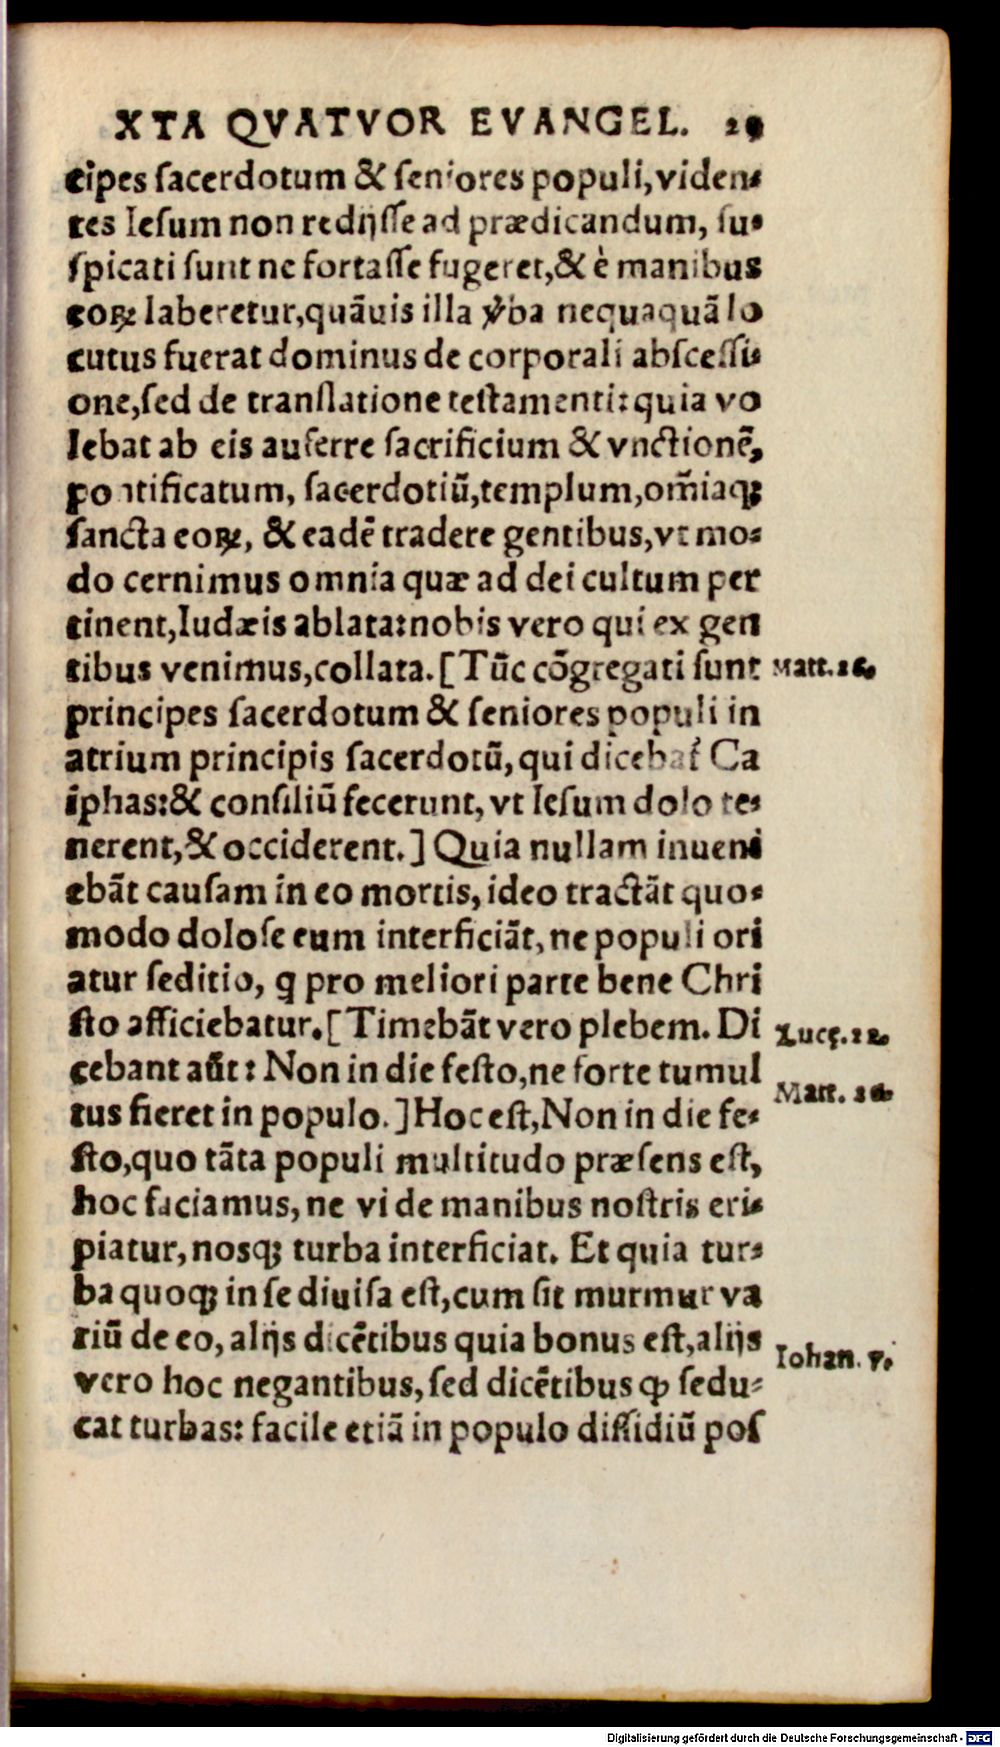 XTA QVATVOR EVANGEL. 29
cipes ſacerdotum & ſeniores populi, viden-
tes Ieſum non redijſſe ad prædicandum, ſu-
ſpicati ſunt ne fortaſſe fugeret, & è manibus
eoꝝ laberetur, quāuis illa v̓ba nequaquā lo
cutus fuerat dominus de corporali abſceſſi-
one, ſed de tranſlatione teſtamenti: quia vo
lebat ab eis auferre ſacrificium & vnctionē,
pontificatum, ſacerdotiū, templum, om̄iaq;
ſancta eoꝝ, & eadē tradere gentibus, vt mo-
do cernimus omnia quæ ad dei cultum per
tinent, Iudæis ablata: nobis vero qui ex gen
tibus venimus, collata. [Tūc cōgregati ſunt
Matt. 26.
principes ſacerdotum & ſeniores populi in
atrium principis ſacerdotū, qui dicebat̓ Ca
iphas: & conſiliū fecerunt, vt Ieſum dolo te-
nerent, & occiderent.] Quia nullam inueni
ebāt cauſam in eo mortis, ideo tractāt quo-
modo doloſe eum interficiāt, ne populi ori
atur ſeditio, q pro meliori parte bene Chri
ſto afficiebatur. [Timebāt vero plebem. Di
Lucę. 22.
cebant aūt: Non in die feſto, ne forte tumul
Matt. 26.
tus fieret in populo.] Hoc eſt, Non in die fe-
ſto, quo tāta populi multitudo præſens eſt,
hoc faciamus, ne vi de manibus noſtris eri-
piatur, noſq; turba interficiat. Et quia tur-
ba quoq; in ſe diuiſa eſt, cum ſit murmur va
riū de eo, alijs dicētibus quia bonus eſt, alijs
Iohan. 7.
vero hoc negantibus, ſed dicētibus ꝙ ſedu-
cat turbas: facile etiā in populo diſſidiū poſ
Digitalisierung gefördert durch die Deutsche Forschungsgemeinschaft - DFG